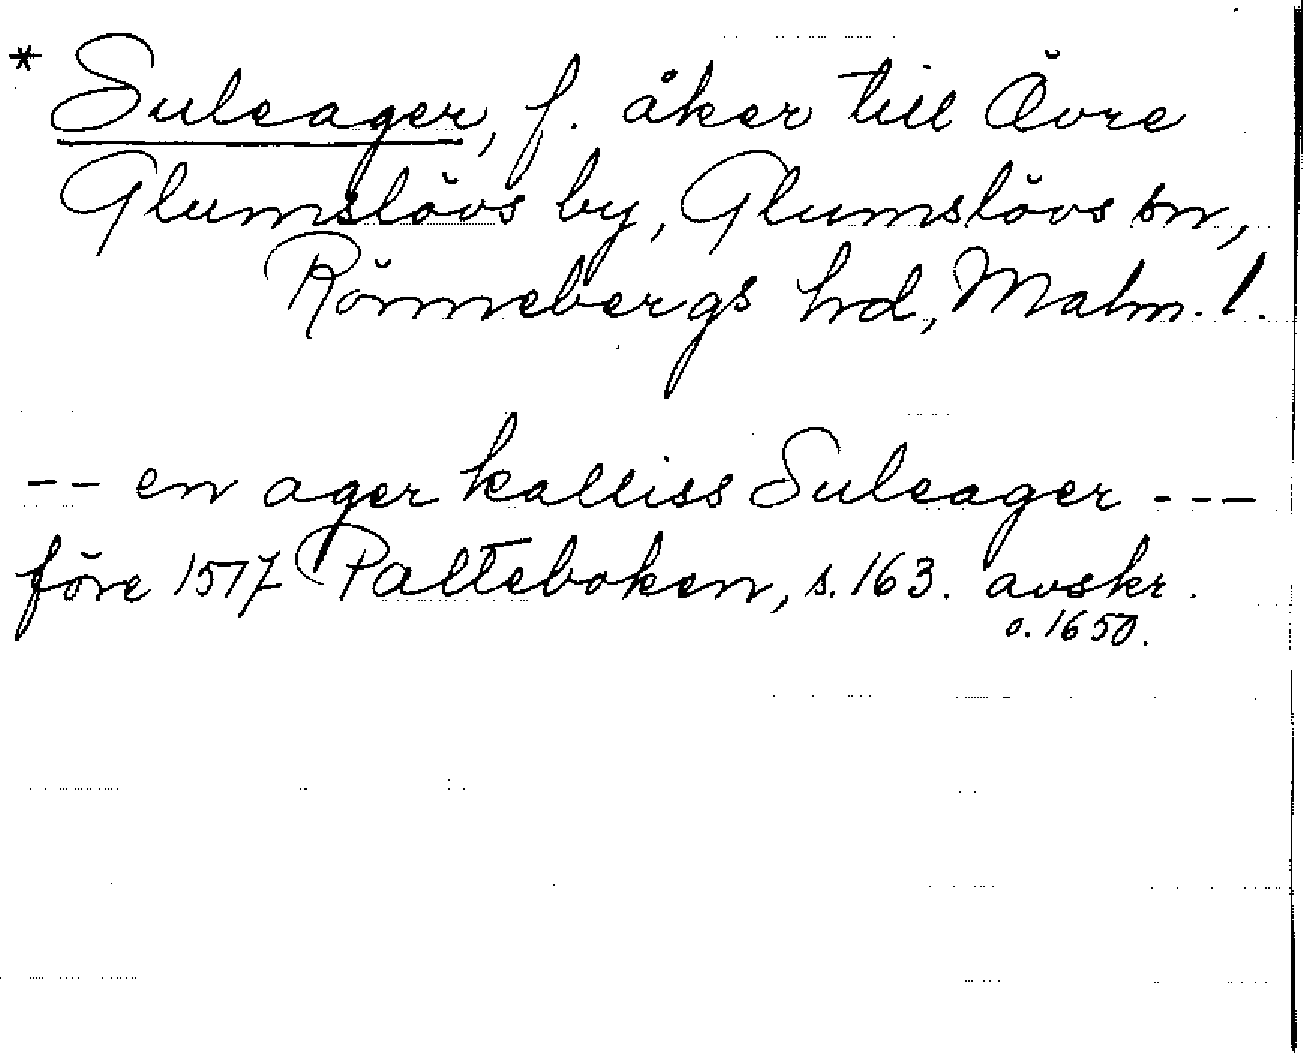 * Suleager, f. åker till Övre
Glumslövs by, Glumslövs sn,
Rönnebergs hrd, Malm. l.
-- en ager kalliss Suleager ---
före 1517 Palteboken, s. 163. avskr.
o. 1650.